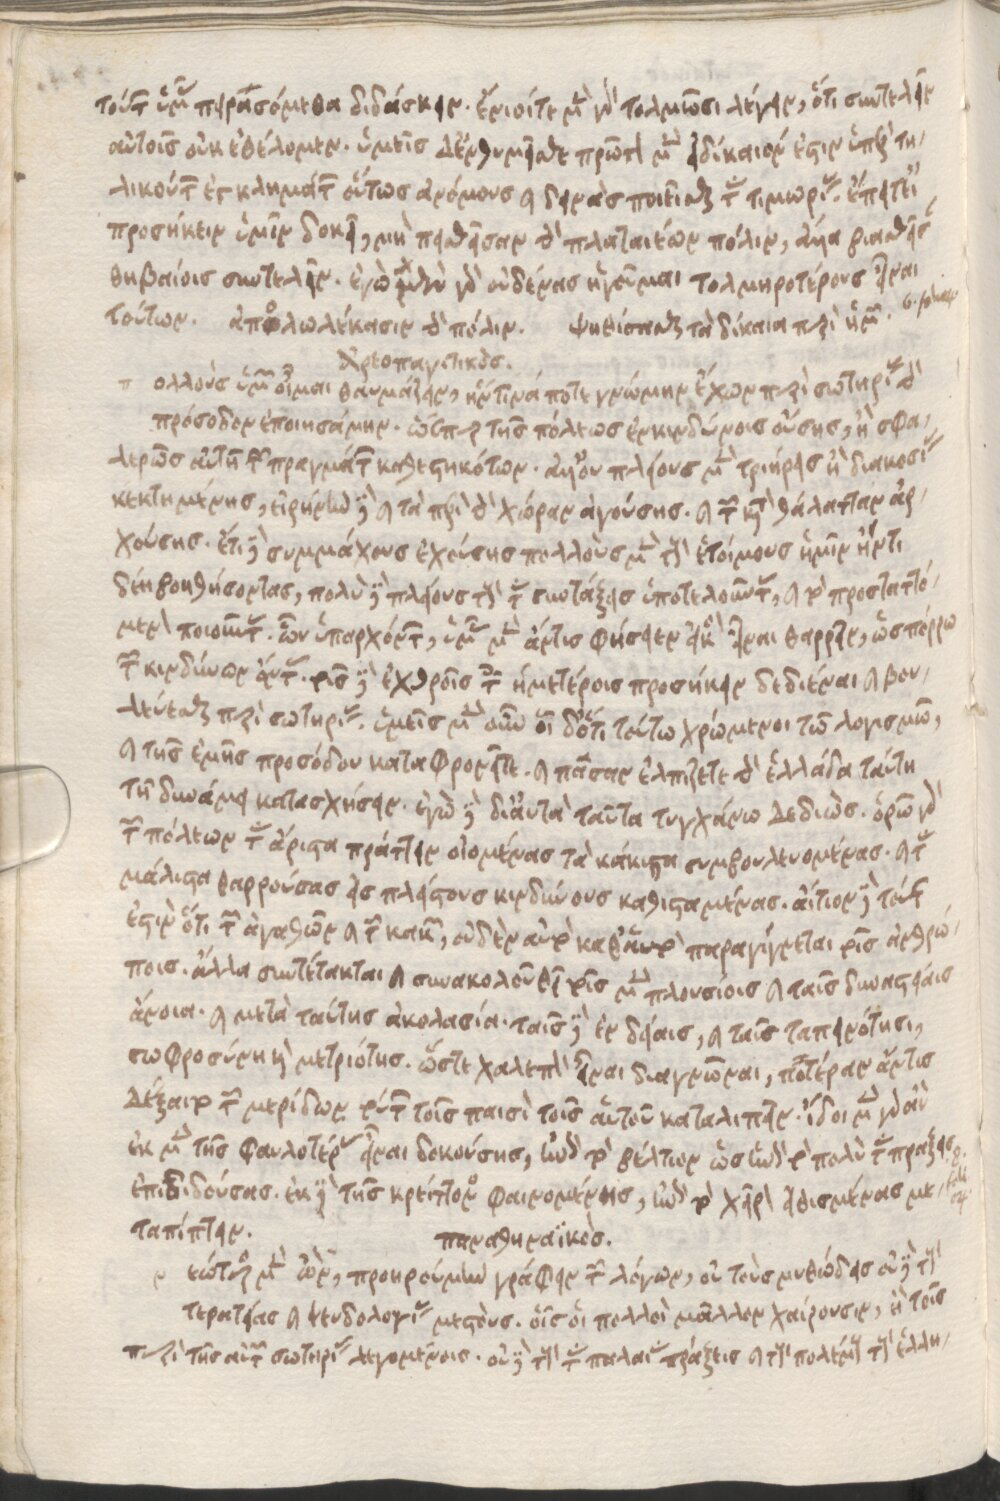 τούτων ὑμᾶς πειρασόμεθα διδάσκειν. ἔνιοί γε μὴν γὰρ τολμῶσι λέγειν, ὅτι συντελεῖν
αὐτοῖς οὐκ ἐθέλομεν. ὑμεῖς δ' ἐνθυμεῖσθε πρῶτον μὲν εἰ δίκαιόν ἐστιν ὑπὲρ τη-
λικούτων ἐγκλημάτων οὕτως ἀνόμους καὶ δεινὰς ποιεῖσθαι τὰς τιμωρίας. ἔπειτ' εἰ
προσήκειν ὑμῖν δοκεῖ, μὴ πεισθεῖσαν τὴν πλαταιέων πόλιν, ἀλλὰ βιασθεῖσαν
θηβαίοις συντελεῖν. ἐγὼ μὲν γὰρ οὐδένας ἡγοῦμαι τολμηροτέρους εἶναι
τούτων. ἀπολωλέκασιν τὴν πόλιν. ψηφίσασθαι τὰ δίκαια περὶ ἡμῶν.
Ἀρεοπαγιτικὸς.
πολλοὺς ὑμῶν οἶμαι θαυμάζειν, ἥντινά ποτε γνώμην ἔχων περὶ σωτηρίας τὴν
πρόσοδον ἐποιησάμην. ὥσπερ τῆς πόλεως ἐν κινδύνοις οὔσης, ἢ σφα-
λερῶς αὐτῇ τῶν πραγμάτων καθεστηκότων. ἀλλ' οὐ πλείους μὲν τριήρεις ἢ διακοσίας
κεκτημένης, εἰρήνην δὲ καὶ τὰ περὶ τὴν χώραν ἀγούσης. καὶ τῶν κατὰ θάλατταν ἀρ-
χούσης. ἔτι δὲ συμμάχους ἐχούσης πολλοὺς μὲν τοὺς ἑτοίμους ἡμῖν ἤν τι
δέῃ βοηθήσοντας, πολὺ δὲ πλείους τοὺς τὰς συντάξεις ὑποτελοῦντας, καὶ τὸ προσταττό-
μενον ποιοῦντας. ὧν ὑπαρχόντων, ἡμᾶς μὲν ἄν τις φήσειεν εἰκὸς εἶναι θαρρεῖν, ὡς πόρρω
τῶν κινδύνων ὄντας. τοῖς δὲ ἐχθροῖς τοῖς ἡμετέροις προσήκειν δεδιέναι καὶ βου-
λεύεσθαι περὶ σωτηρίας. ὑμεῖς μὲν οὖν οἶδ' ὅτι τούτω χρώμενοι τῶ λογισμῶ,
καὶ τῆς ἐμῆς προσόδου καταφρονεῖτε. καὶ πᾶσαν ἐλπίζετε τὴν ἑλλάδα ταύτη
τῇ δυνάμει κατασχήσειν. ἐγὼ δὲ δι' αὐτὰ ταῦτα τυγχάνω δεδιώς. ὁρῶ γὰρ
τῶν πόλεων τὰς ἄριστα πράττειν οἰομένας τὰ κάκιστα συμβουλευομένας. καὶ τὰς
μάλιστα θαρρούσας εἰς πλείστους κινδύνους καθισταμένας. αἴτιον δὲ τούτων
ἐστὶν ὅτι τῶν ἀγαθῶν καὶ τῶν κακῶν, οὐδὲν αὐτὸ καθ' αὑτὸ παραγίγνεται τοῖς ἀνθρώ-
ποις. ἀλλὰ συντέτακται καὶ συνακολουθεῖ τοῖς μὲν πλουσίοις καὶ ταῖς δυναστείαις
ἄνοια. καὶ μετὰ ταύτης ἀκολασία. ταῖς δὲ ἐνδείαις, καὶ ταῖς ταπεινότησι,
σωφροσύνη καὶ μετριότης. ὥστε χαλεπὸν εἶναι διαγνῶναι, ποτέραν ἄν τις
δέξαιτο τῶν μερίδων τούτων τοῖς παισὶ τοῖς αὑτοῦ καταλιπεῖν. ἴδοι μὲν γὰρ ἂν
ἐκ μὲν τῆς φαυλοτέρας εἶναι δοκούσης, ἐπὶ τὸ βέλτιον ὡς ἐπὶ τὸ πολὺ τὰς πράξεις
ἐπιδιδούσας. ἐκ δὲ τῆς κρείττονος φαινομένης, ἐπὶ τὸ χεῖρον εἰθισμένας με-
ταπίπτειν. παναθηναϊκὸς.
νεώτερος μὲν ὢν, προῃρούμην γράφειν τῶν λόγων, οὐ τοὺς μυθώδεις οὐδὲ τοὺς
τερατείας καὶ ψευδολογίας μεστοὺς. οἷς οἱ πολλοὶ μᾶλλον χαίρουσιν, ἢ τοῖς
περὶ τῆς αὑτῶν σωτηρίας λεγομένοις. οὐδὲ τοὺς τὰς παλαιὰς πράξεις καὶ τοὺς πολέμους τοὺς ἑλλη-